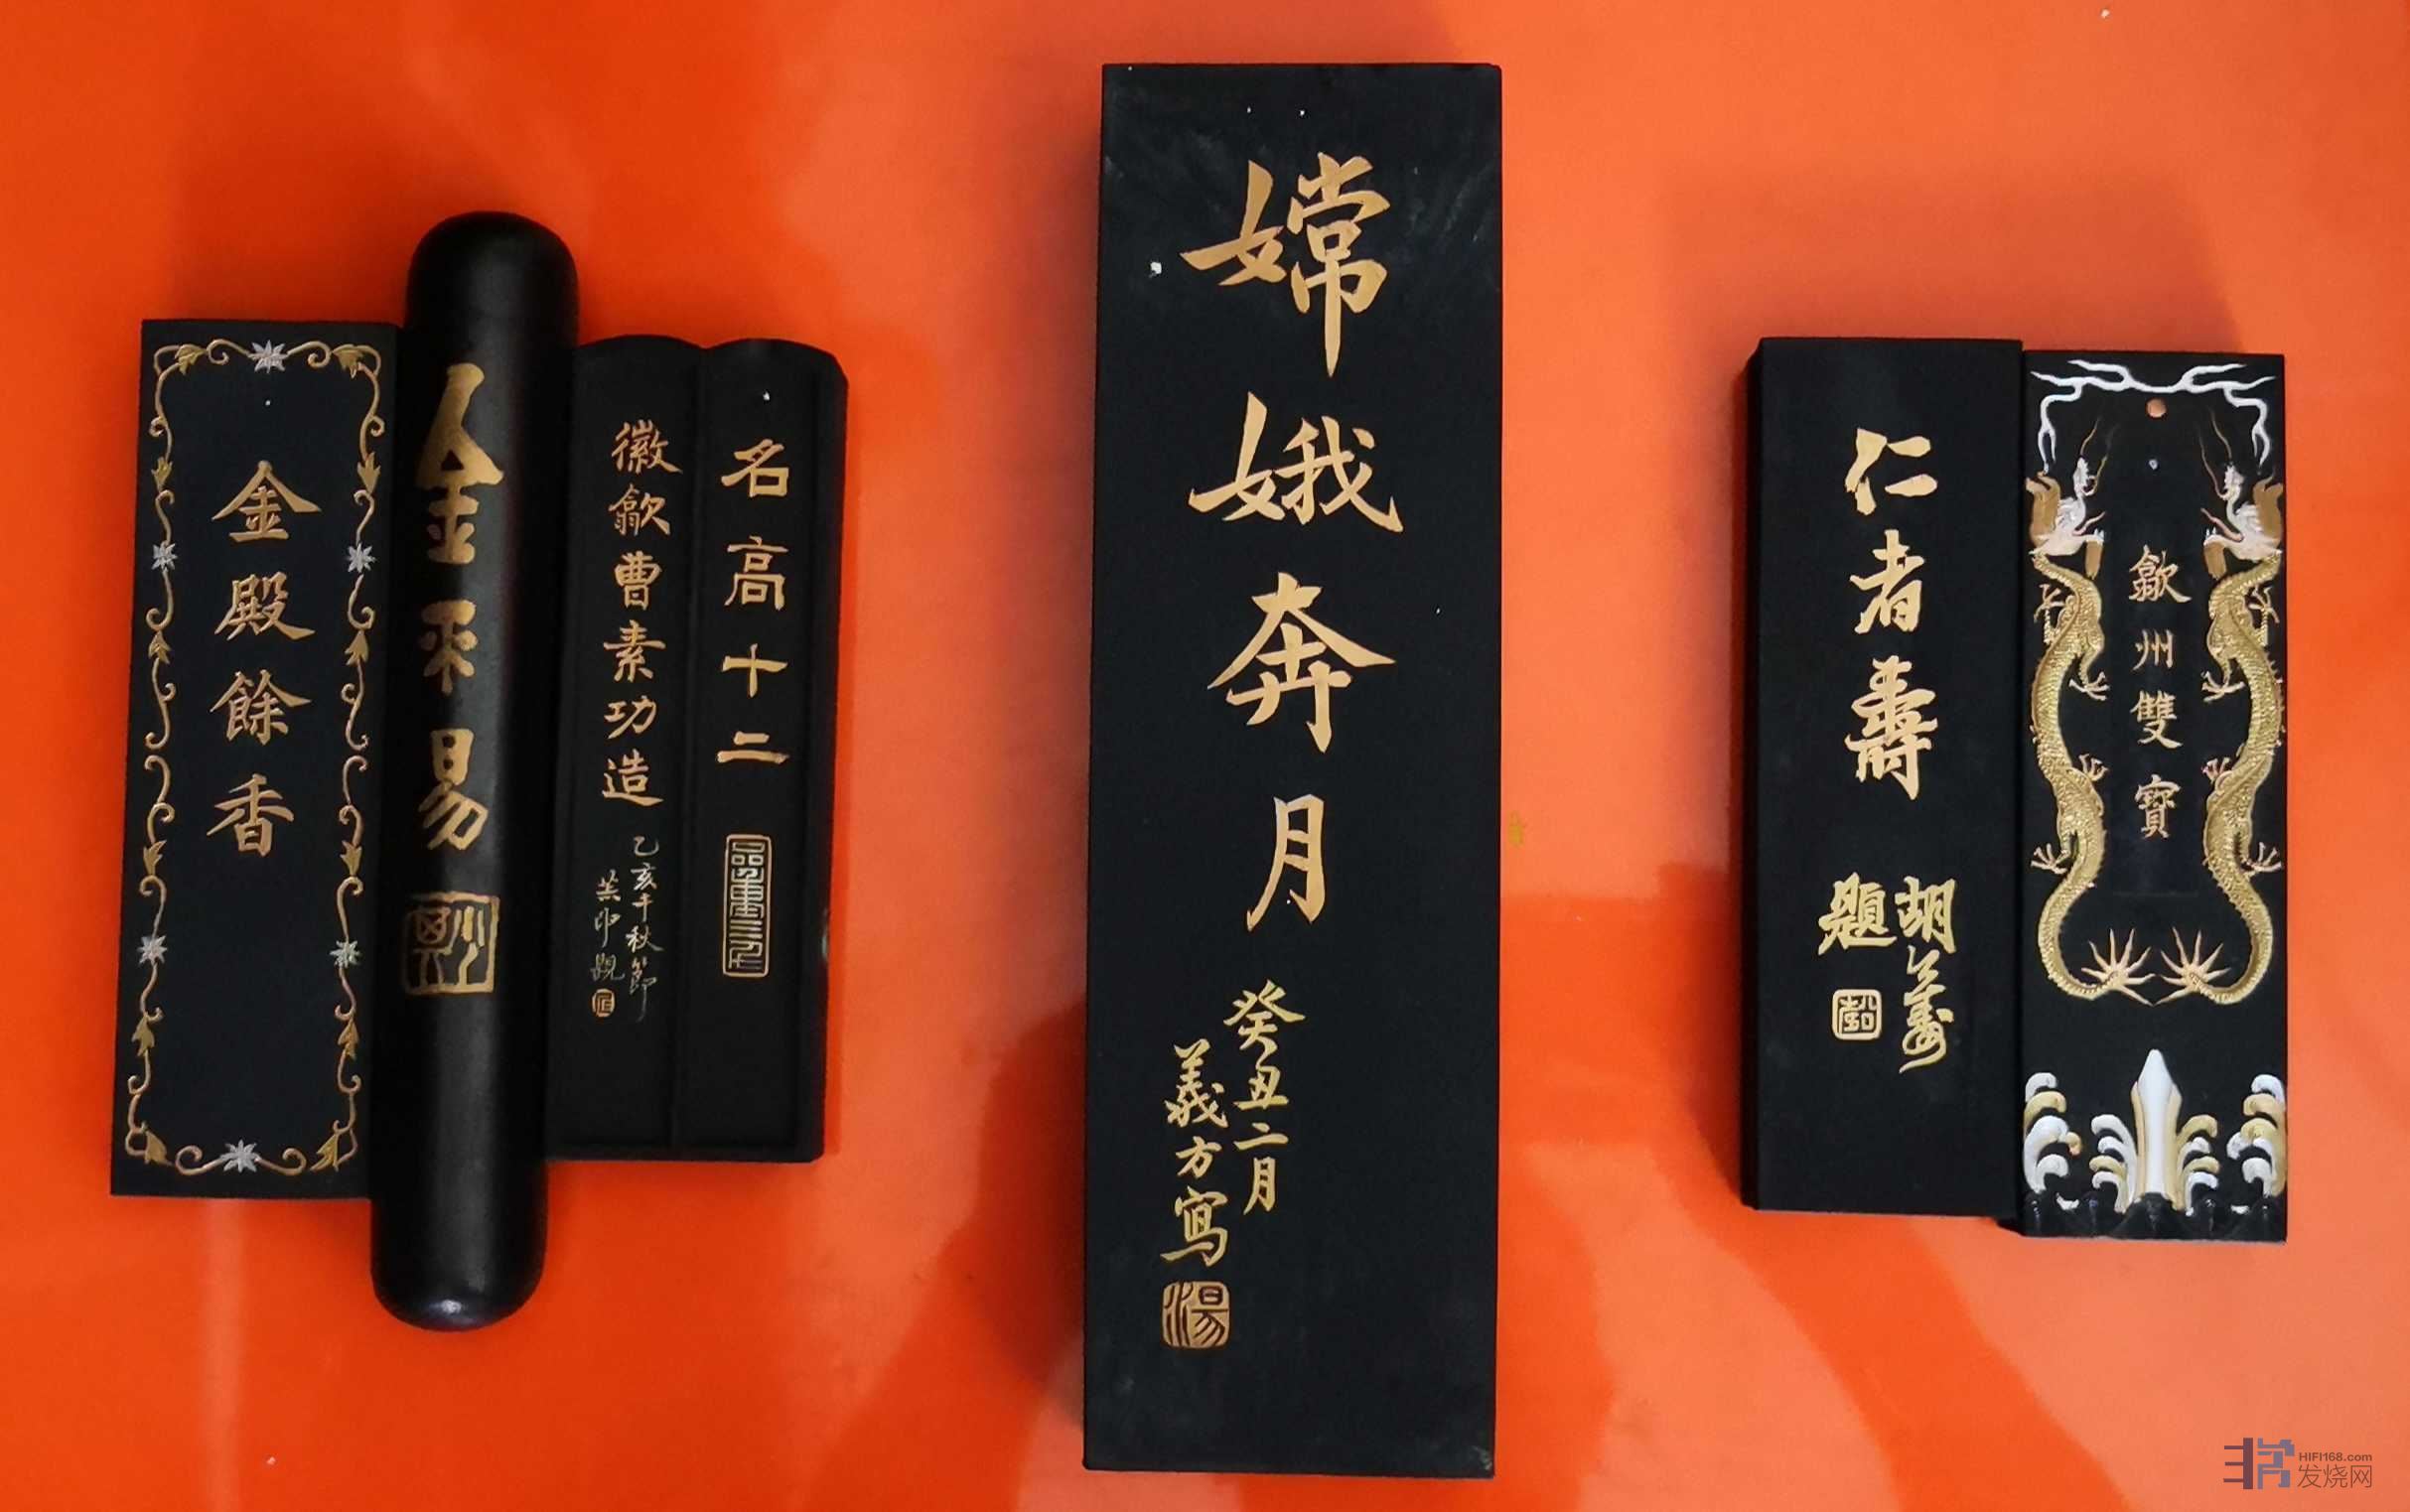 金殿餘香
金不易
名高十二
徽歙曹素功造
乙亥年秋節
嫦娥奔月
癸丑二月
義方寫
湯
仁者壽
胡
題
歙州雙寶
HIFI168.com
发烧网